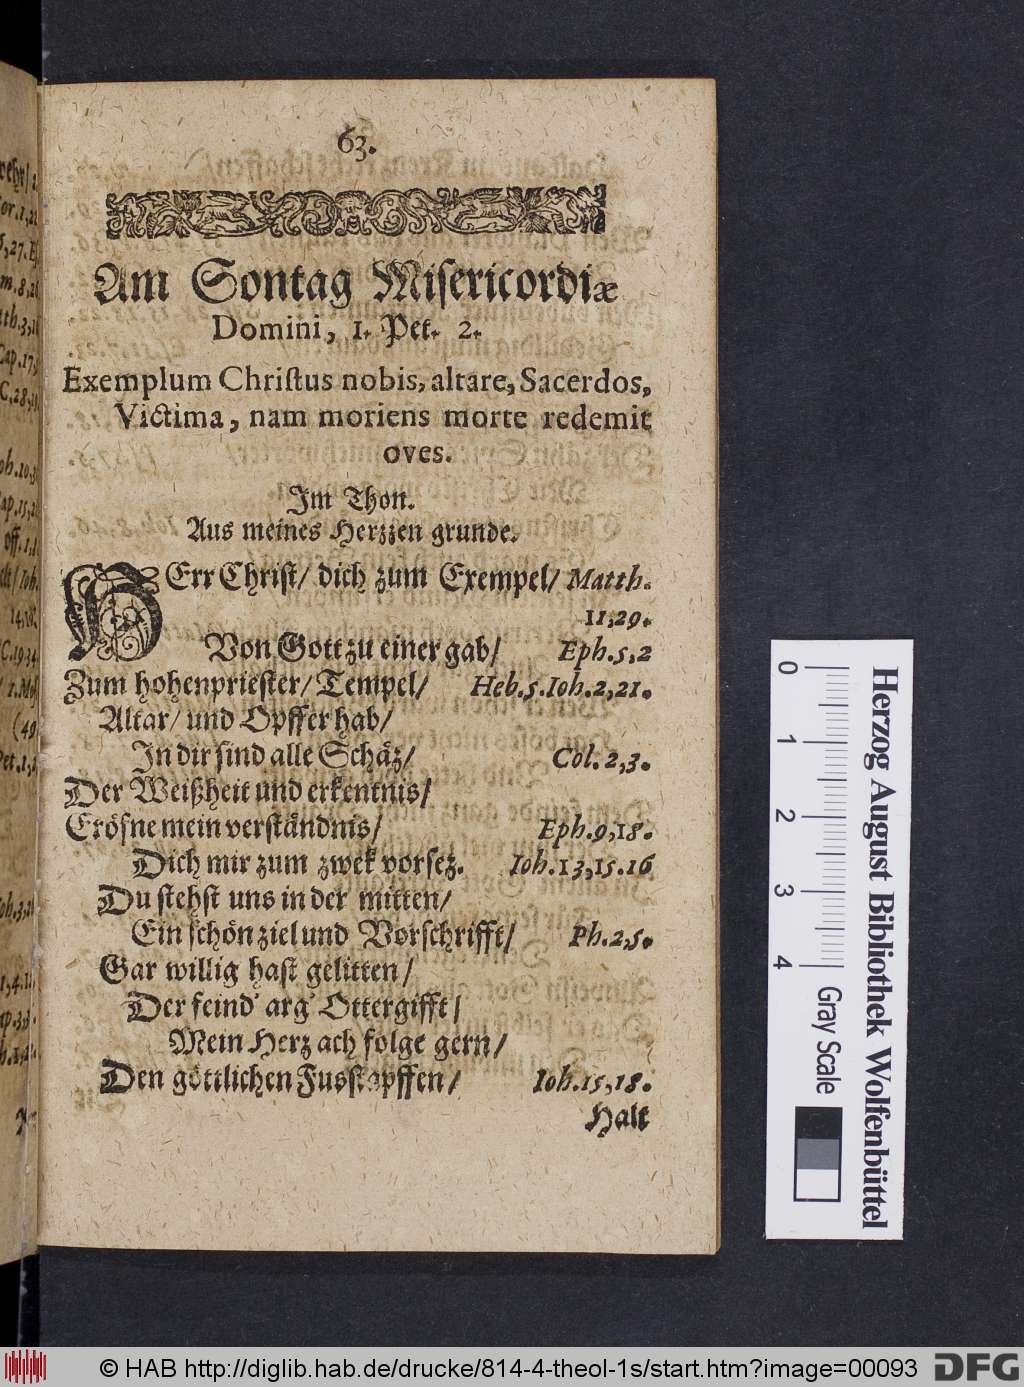 63.
Am Sontag Misericordiæ
Domini, 1. Pet. 2.
Exemplum Christus nobis, altare, Sacerdos,
Victima, nam moriens morte redemit
oves.
Im Thon.
Aus meines Herzzen grunde.
HErr Christ/ dich zum Exempel/ Matth.
11,29.
Von Gott zu einer gab/ Eph.5,2
Zum hohenpriester/ Tempel/ Heb.5.Ioh.2,21.
Altar/ und Opffer hab/
In dir sind alle Schäz/ Col.2,3.
Der Weißheit und erkentnis/
Eröfne mein verständnis/ Eph.9,18.
Dich mir zum zwek vorsez. Ioh.13,15.16
Du stehst uns in der mitten/
Ein schön ziel und Vorschrifft/ Ph.2,5.
Gar willig hast gelitten/
Der feind' arg' Ottergifft/
Mein Herz ach folge gern/
Den göttlichen Fusstapffen/ Ioh.15,18.
Halt
Herzog August Bibliothek Wolfenbüttel
0 1 2 3 4 Gray Scale
© HAB http://diglib.hab.de/drucke/814-4-theol-1s/start.htm?image=00093 DFG